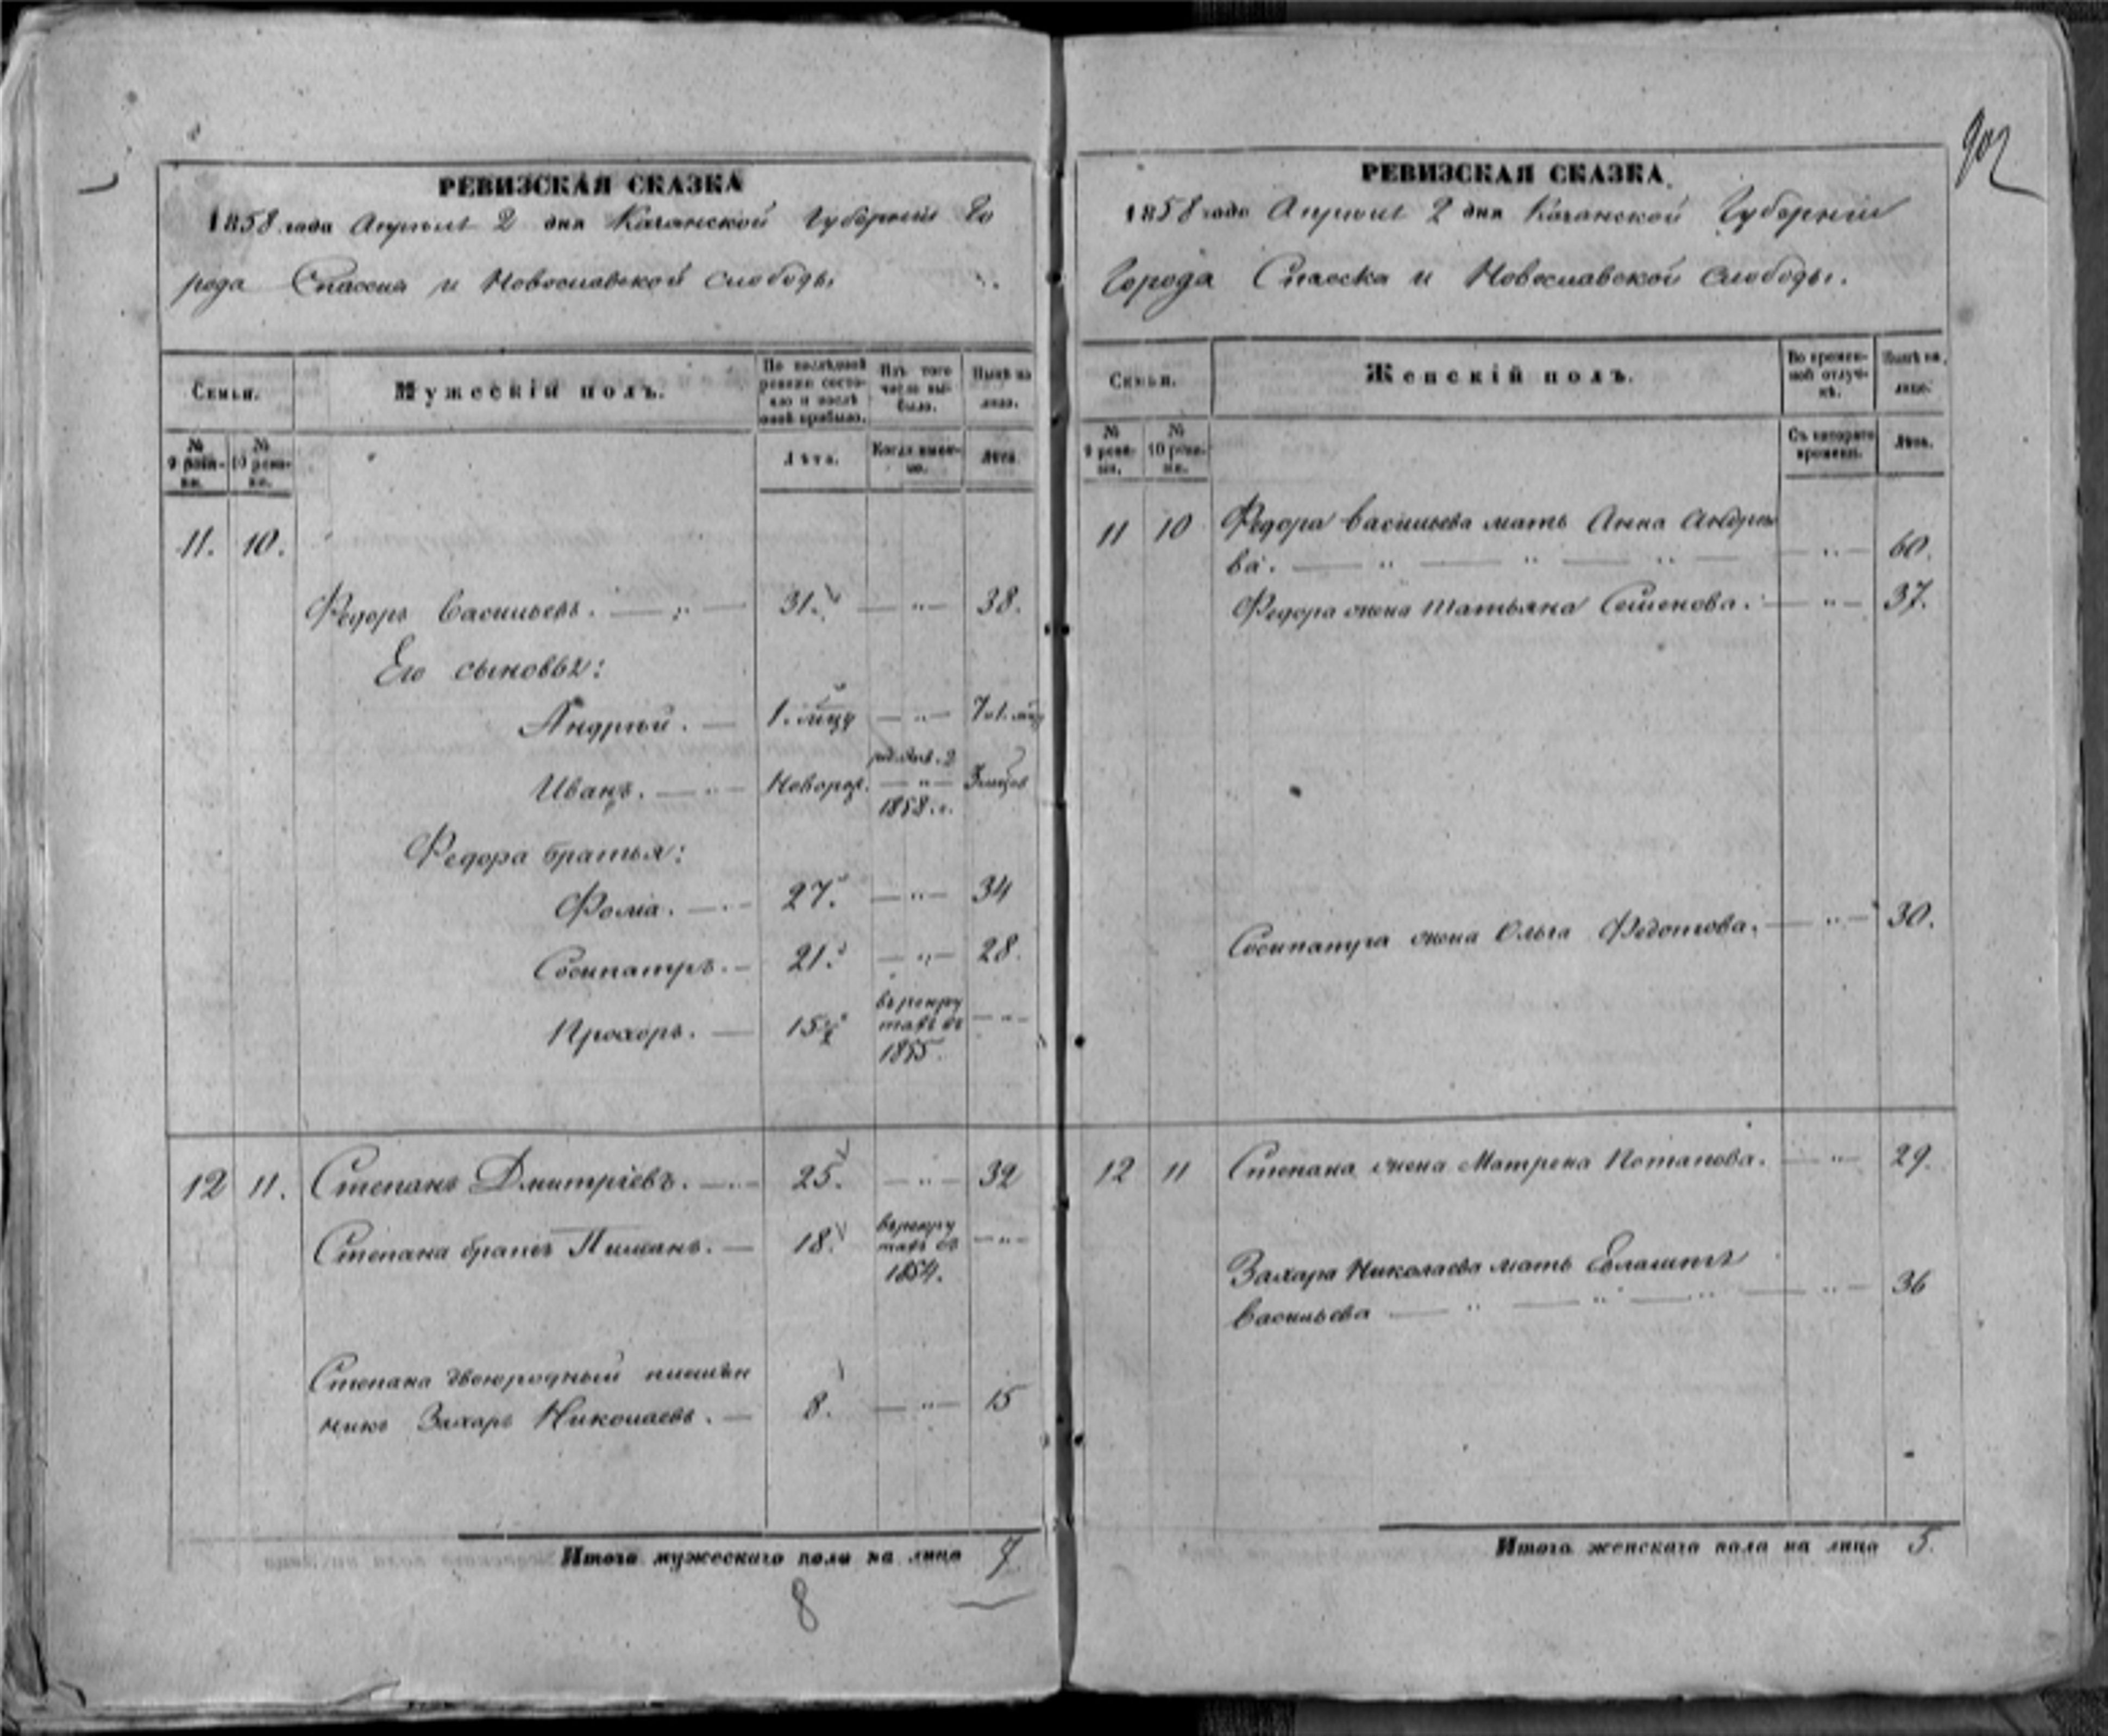 902
РЕВИЗСКАЯ СКАЗКА
1858 года Апреля 2 дня Казанской Губернии Го
рода Спасска и Новославской слободы
Семьи. Мужескій полъ. По послѣдней ревизіи состояло и послѣ оной прибыло. Изъ того числа выбыло. Нынѣ на лицо.
№ 9 ревизіи. № 10 ревизіи. Лѣта. Когда именно. Лѣта.
11. 10.
Федоръ Васильевъ. — 31. — „ — 38.
Его сыновья:
Андрей. — 1. мцу — „ — 7 и 1. мцу
род. Янв. 2
Иванъ. — „ — Новорож. — „ — 3 мцов
1858. г.
Федора братья:
Фома. — 27. — „ — 34
Сосипатръ. — 21. — „ — 28.
Прохоръ. — 15 в рекру
тахъ въ — „ —
1855.
12 11. Степанъ Дмитріевъ. — 25. — „ — 32
Степана братъ — 18. в рекру
тахъ въ — „ —
1854.
Степана двоюродный племян
никъ Захаръ Николаевъ. — 8. — „ — 15
Итого мужескаго пола на лицо 7
8
РЕВИЗСКАЯ СКАЗКА
1858 года Апреля 2 дня Казанской Губерніи
Города Спасска и Новославской слободы.
Семьи. Женскій полъ. Во временной отлучкѣ. Нынѣ на лицо.
№ 9 ревизіи. № 10 ревизіи. Съ котораго времени. Лѣта.
11 10 Федора Васильева мать Анна Андрее
ва. — „ — „ — „ — — „ — 60.
Федора жена Татьяна Семенова. — „ — 37.
Сосипатра жена Ольга Федотова. — „ — 30.
12 11 Степана жена Матрена Потапова. — „ — 29.
Захара Николаева мать
Васильева — „ — „ — „ — „ — 36
Итого женскаго пола на лицо 5.